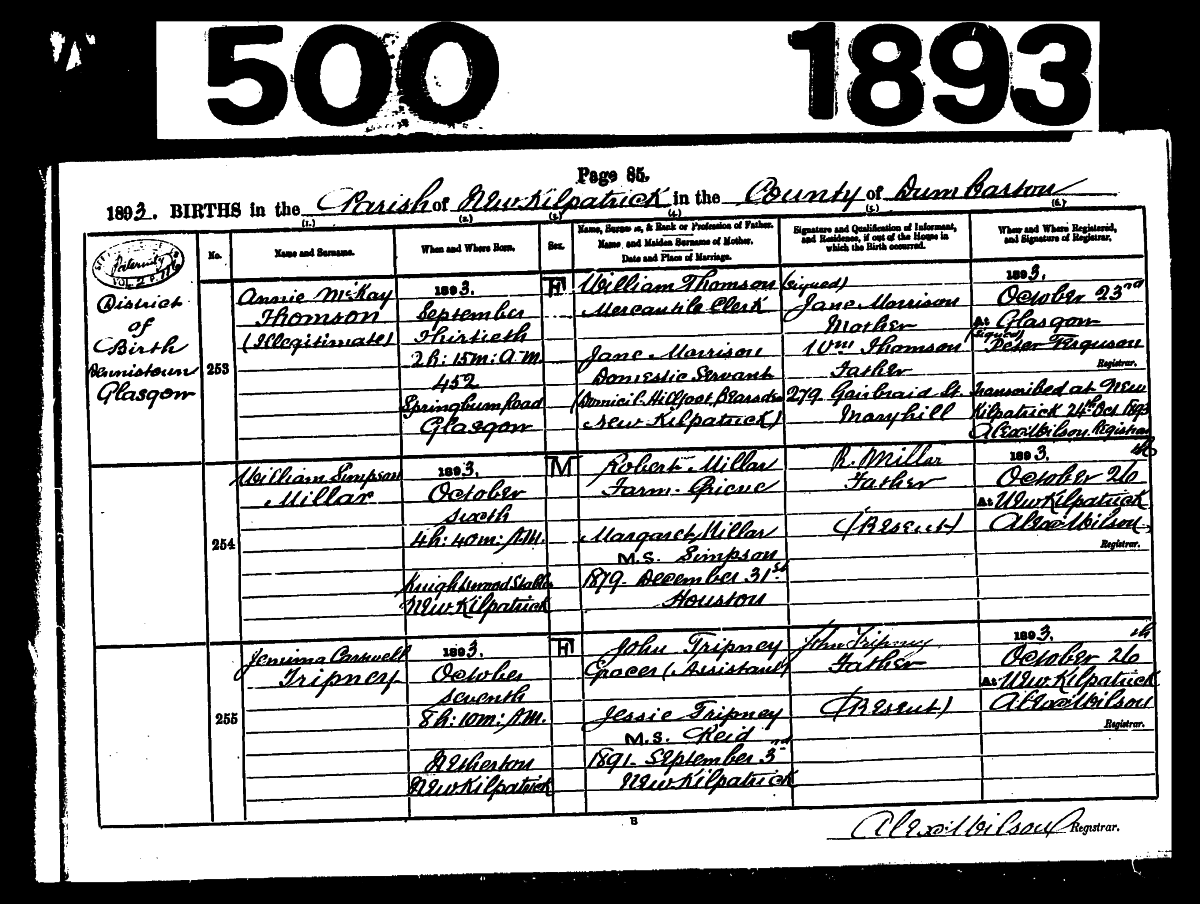 500 1893
Page 85.
1893. BIRTHS in the Parish of New Kilpatrick in the County of Dumbarton
(1.) (2.) (3.) (4.) (5.) (6.)
No.
Name and Surname.
When and Where Born.
Sex.
Name, Surname, & Rank or Profession of Father.
Name, and Maiden Surname of Mother.
Date and Place of Marriage.
Signature and Qualification of Informant,
and Residence, if out of the House in
which the Birth occurred.
When and Where Registered,
and Signature of Registrar.
Paternity
VOL.
District
of
Birth
Dennistown
Glasgow
253
Annie McKay
Thomson
(Illegitimate)
1893.
September
Thirtieth
2h: 15m: A.M.
452
Springburn Road
Glasgow
William Thomson
Mercantile Clerk
Jane Morrison
Domestic Servant
(Domicil: Hillfoot, Bearsden
New Kilpatrick)
(Signed)
Jane Morrison
Mother
Wm Thomson
Father
279 Gairbraid St.
Maryhill
1893.
October 23rd
At Glasgow
(Signed)
Peter Ferguson
Registrar.
Transcribed at New
Kilpatrick 24th Oct 1893
Alexr Wilson Registrar
254
William Simpson
Millar
1893.
October
sixth
4h: 40m: A.M.
Knightswood Stables
New Kilpatrick
M
Robert Millar
Farm Grieve
Margaret Millar
M.S. Simpson
1879. December 31st
Houston
R. Millar
Father
(Present)
1893.
October 26th
At New Kilpatrick
Alexr Wilson
Registrar.
255
Jemima Carswell
Tripney
1893.
October
seventh
8h: 10m: A.M.
Netherton
New Kilpatrick
John Tripney
Grocer (Assistant)
Jessie Tripney
M.S. Reid
1891. September 3rd
New Kilpatrick
John Tripney
Father
(Present)
1893.
October 26th
At New Kilpatrick
Alexr Wilson
Registrar.
B
Alexr Wilson Registrar.